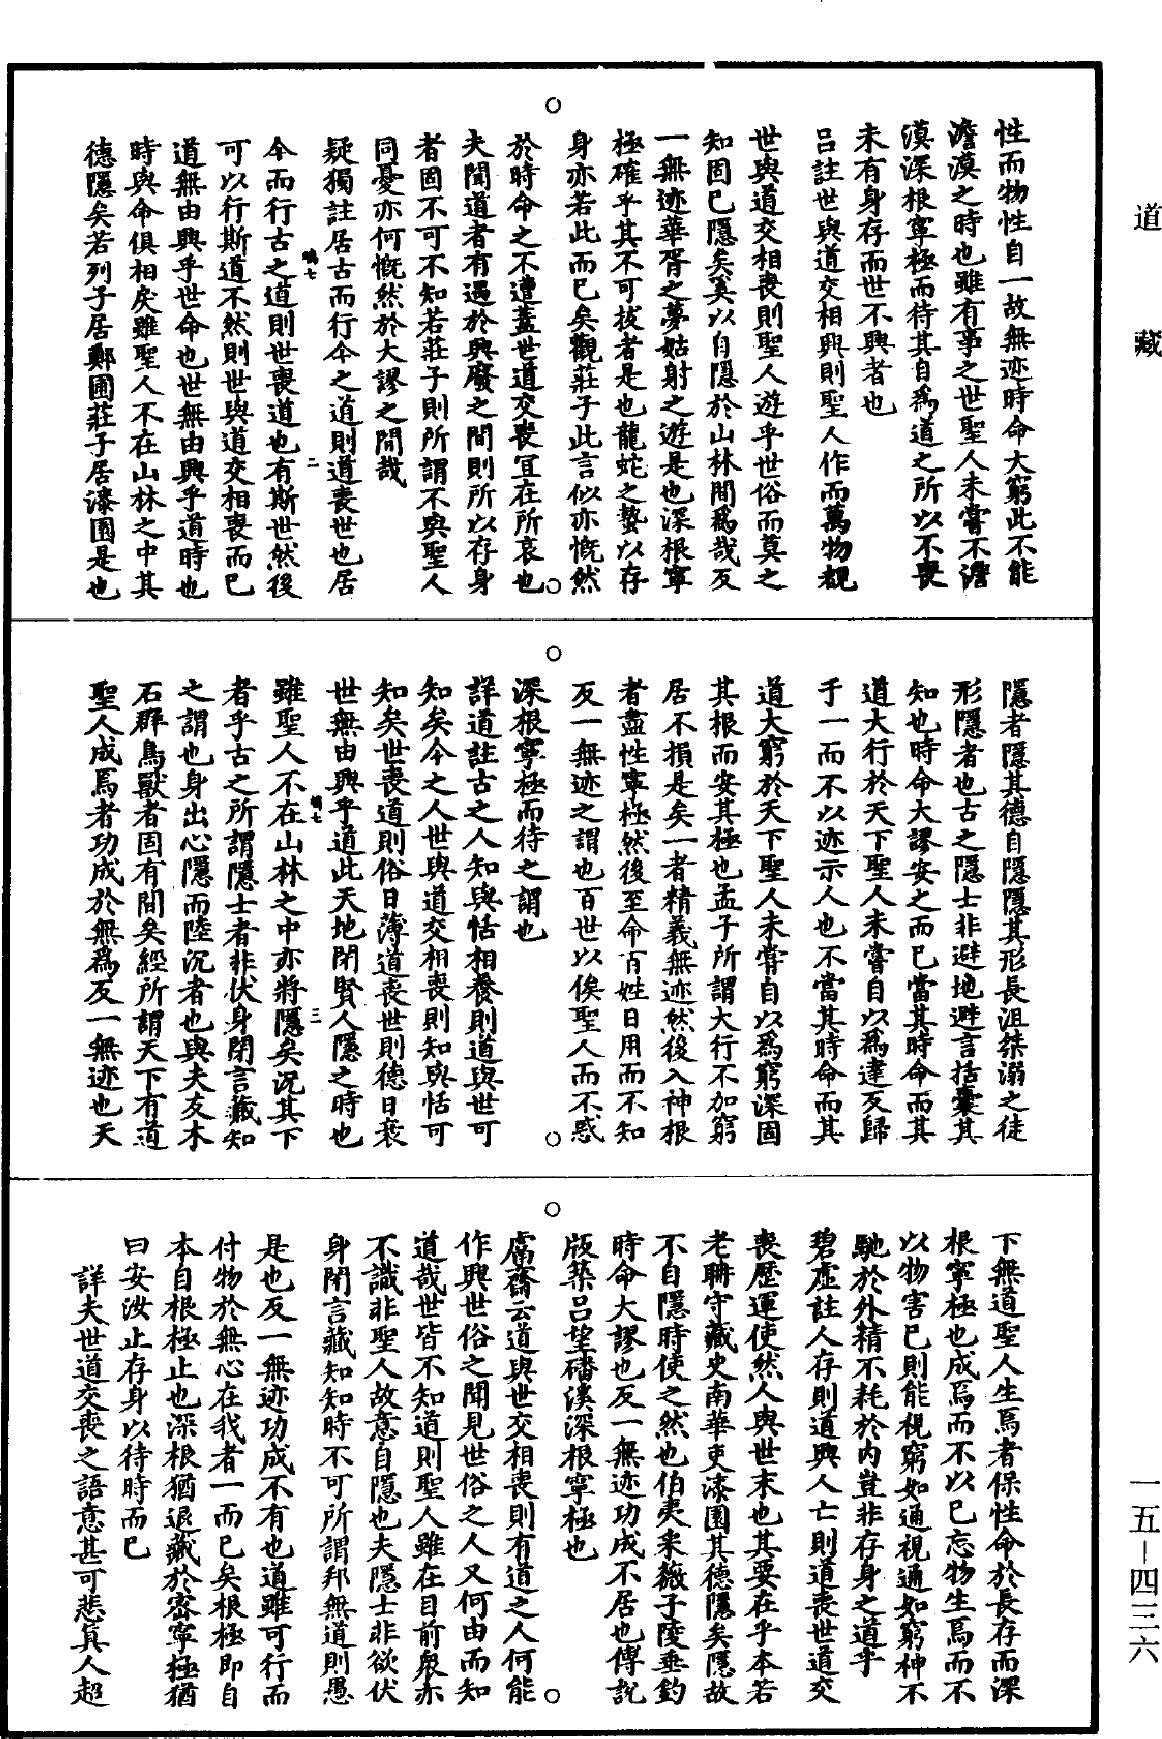 道藏
性而物性自一故無迹時命大窮此不能
澹漠之時也雖有事之世聖人未嘗不澹
漠深根寧極而待其自為道之所以不喪
未有身存而世不興者也
呂註世與道交相興則聖人作而萬物覩
世與道交相喪則聖人遊乎世俗而莫之
知固已隱矣奚以自隱於山林間為哉反
一無迹華胥之夢姑射之遊是也深根寧
極確乎其不可拔者是也龍蛇之蟄以存
身亦若此而已矣觀莊子此言似亦慨然
於時命之不遭蓋世道交喪宜在所哀也
夫聞道者有遇於興廢之間則所以存身
者固不可不知若莊子則所謂不與聖人
同憂亦何慨然於大謬之間哉
疑獨註居古而行今之道則道喪世也居
今而行古之道則世喪道也有斯世然後
可以行斯道不然則世與道交相喪而已
道無由興乎世命也世無由興乎道時也
時與命俱相戾雖聖人不在山林之中其
德隱矣若列子居鄭圃莊子居漆園是也
隱者隱其德自隱隱其形長沮桀溺之徒
形隱者也古之隱士非避地避言括囊其
知也時命大謬安之而已當其時命而其
道大行於天下聖人未嘗自以為達反歸
于一而不以迹示人也不當其時命而其
道大窮於天下聖人未嘗自以為窮深固
其根而安其極也孟子所謂大行不加窮
居不損是矣一者精義無迹然後入神根
者盡性寧極然後至命百姓日用而不知
反一無迹之謂也百世以俟聖人而不惑
深根寧極而待之謂也
詳道註古之人知與恬相養則道與世可
知矣今之人世與道交相喪則知與恬可
知矣世喪道則俗日薄道喪世則德日衰
世無由興乎道此天地閉賢人隱之時也
雖聖人不在山林之中亦將隱矣況其下
者乎古之所謂隱士者非伏身閉言藏知
之謂也身出心隱而陸沉者也與夫友木
石群鳥獸者固有間矣經所謂天下有道
聖人成焉者功成於無為反一無迹也天
下無道聖人生焉者保性命於長存而深
根寧極也成焉而不以己忘物生焉而不
以物害己則能視窮如通視通如窮神不
馳於外精不耗於內豈非存身之道乎
碧虛註人存則道興人亡則道喪世道交
喪歷運使然人與世末也其要在乎本若
老聃守藏史南華吏漆園其德隱矣隱故
不自隱時使之然也伯夷采薇子陵垂釣
時命大謬也反一無迹功成不居也傅說
版築呂望磻溪深根寧極也
鬳齋云道與世交相喪則有道之人何能
作興世俗之聞見世俗之人又何由而知
道哉世皆不知道則聖人雖在目前衆亦
不識非聖人故意自隱也夫隱士非欲伏
身閉言藏知知時不可所謂邦無道則愚
是也反一無迹功成不有也道雖可行而
付物於無心在我者一而已矣根極即自
本自根極止也深根猶退藏於密寧極猶
曰安汝止存身以待時而已
詳夫世道交喪之語意甚可悲真人超
一五－四三六